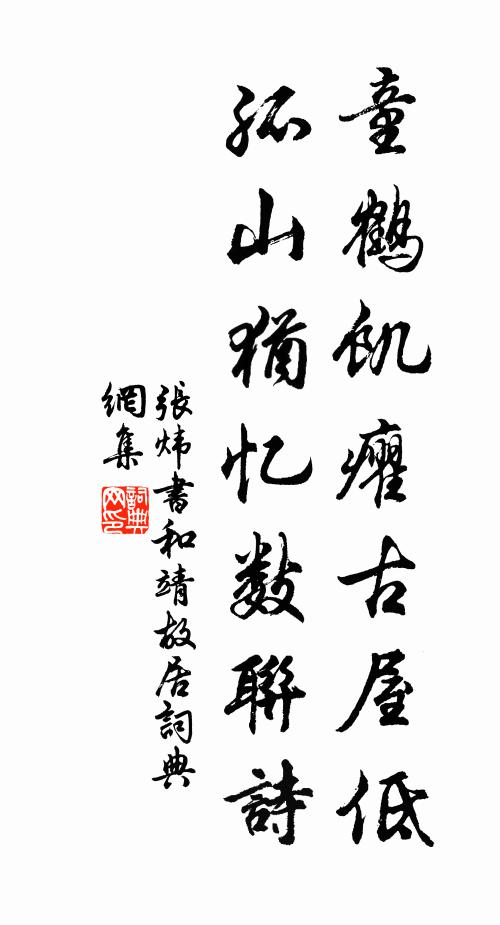 童鶴飢癯古屋低
孤山猶忆数聯詩
張炜書和靖故居詞典
網集
詞典
网印